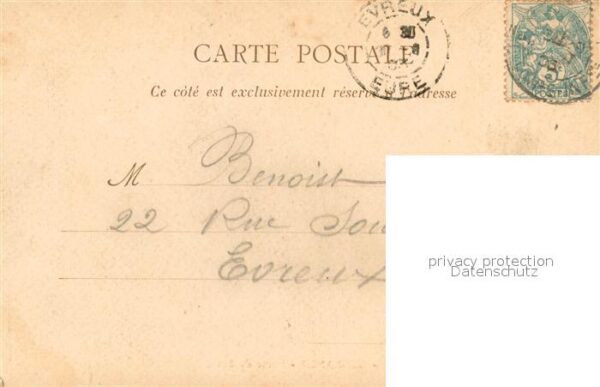 EVREUX
EURE
CARTE POSTALE
Ce côté est exclusivement réservé à l'adresse
M Benoist
22 Rue Sou
Evreux
privacy protection
Datenschutz